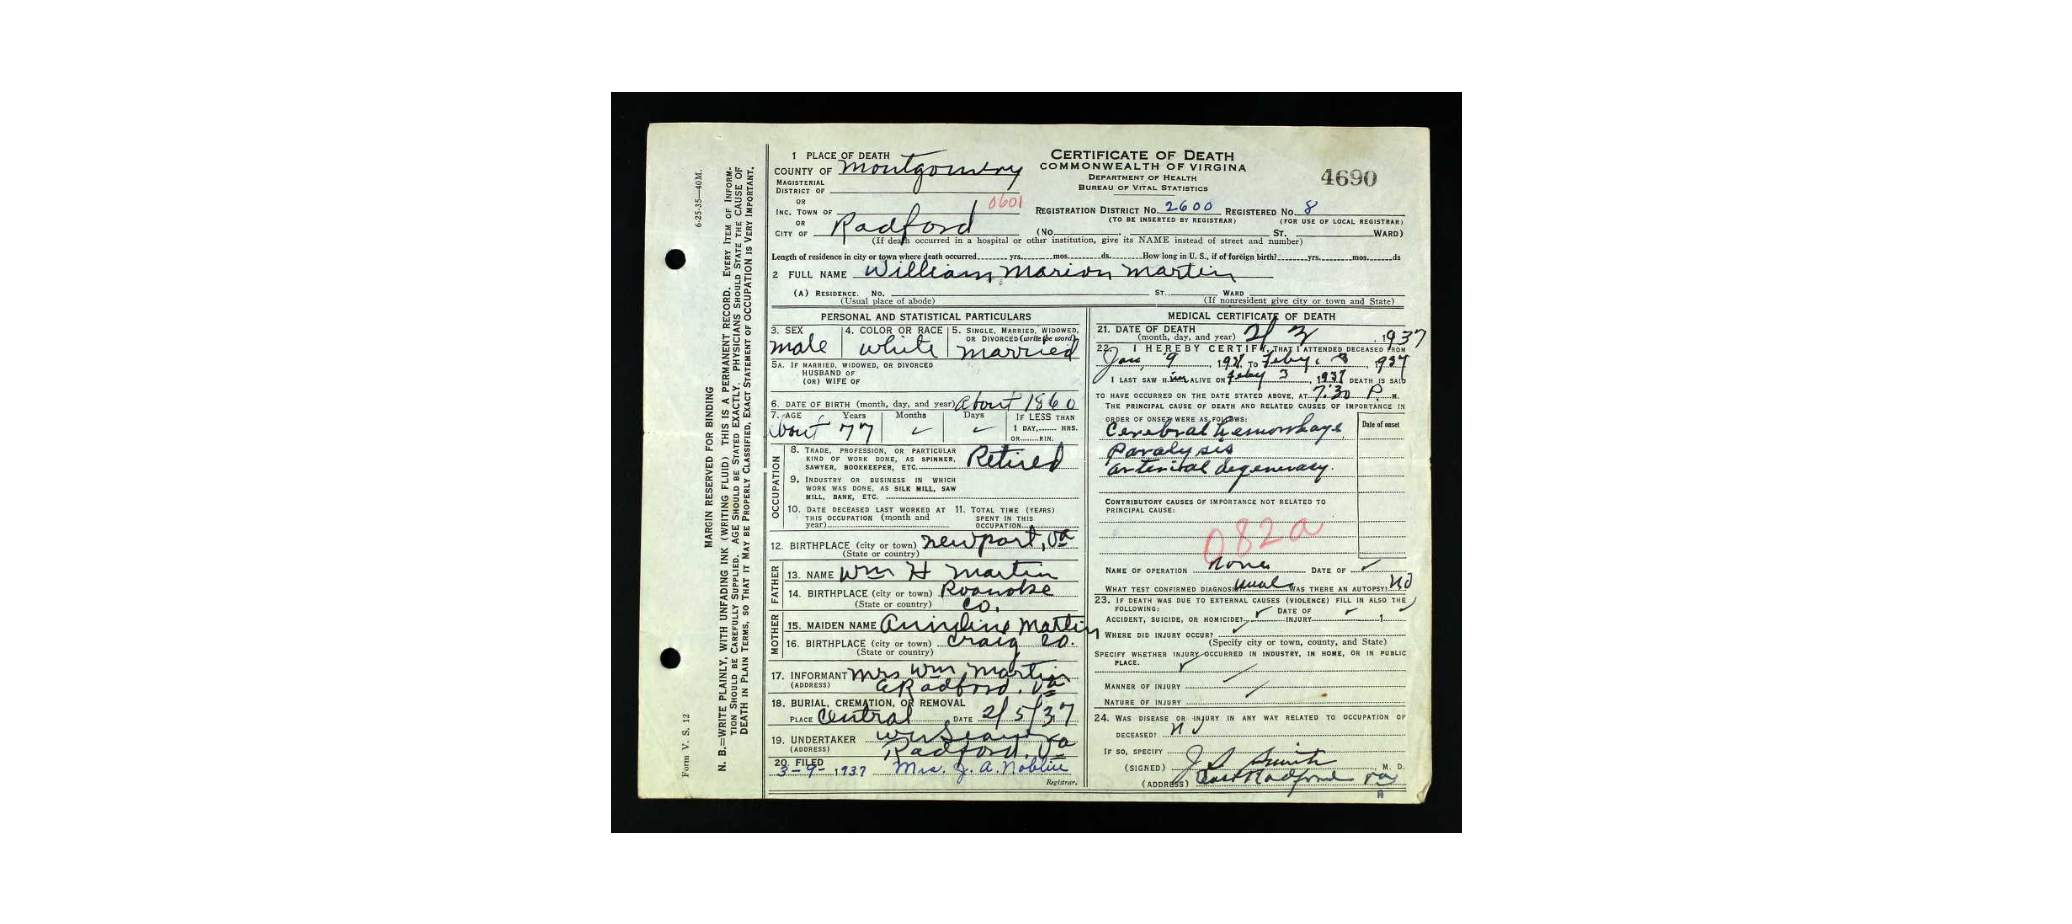 1 PLACE OF DEATH
COUNTY OF Montgomery
MAGISTERIAL
DISTRICT OF
OR
INC. TOWN OF
0601
OR
CITY OF Radford
CERTIFICATE OF DEATH
COMMONWEALTH OF VIRGINIA
DEPARTMENT OF HEALTH
BUREAU OF VITAL STATISTICS
4690
REGISTRATION DISTRICT NO. 2600 REGISTERED NO. 8
(TO BE INSERTED BY REGISTRAR) (FOR USE OF LOCAL REGISTRAR)
(No. ST. WARD)
(If death occurred in a hospital or other institution, give its NAME instead of street and number)
Length of residence in city or town where death occurred yrs. mos. ds. How long in U. S., if of foreign birth? yrs. mos. ds
2 FULL NAME William Marion Martin
(A) RESIDENCE. NO. ST. WARD
(Usual place of abode) (If nonresident give city or town and State)
PERSONAL AND STATISTICAL PARTICULARS
3. SEX 4. COLOR OR RACE 5. SINGLE, MARRIED, WIDOWED,
OR DIVORCED (write the word)
male white married
5A. IF MARRIED, WIDOWED, OR DIVORCED
HUSBAND OF
(OR) WIFE OF
6. DATE OF BIRTH (month, day, and year) About 1860
7. AGE Years Months Days IF LESS THAN
1 DAY, HRS.
OR MIN.
bout 77
OCCUPATION
8. TRADE, PROFESSION, OR PARTICULAR
KIND OF WORK DONE, AS SPINNER,
SAWYER, BOOKKEEPER, ETC. Retired
9. INDUSTRY OR BUSINESS IN WHICH
WORK WAS DONE, AS SILK MILL, SAW
MILL, BANK, ETC.
10. DATE DECEASED LAST WORKED AT
THIS OCCUPATION (month and
year)
11. TOTAL TIME (YEARS)
SPENT IN THIS
OCCUPATION
12. BIRTHPLACE (city or town) Newport, Va
(State or country)
FATHER
13. NAME Wm H Martin
14. BIRTHPLACE (city or town) Roanoke
(State or country) Co.
MOTHER
15. MAIDEN NAME Martin
16. BIRTHPLACE (city or town) Craig Co.
(State or country)
17. INFORMANT Mrs Wm Martin
(ADDRESS) Radford, Va
18. BURIAL, CREMATION, OR REMOVAL
PLACE Central DATE 2/5/37
19. UNDERTAKER
(ADDRESS) Radford, Va
20. FILED
3-9-1937 Mrs. J. A. Noblin
Registrar.
MEDICAL CERTIFICATE OF DEATH
21. DATE OF DEATH
(month, day, and year) 2/3, 1937
22. I HEREBY CERTIFY, THAT I ATTENDED DECEASED FROM
Jan 9, TO Feby. 3 1937
I LAST SAW HIM ALIVE ON Feby 3, 1937 DEATH IS SAID
TO HAVE OCCURRED ON THE DATE STATED ABOVE, AT 7:30 P. M.
THE PRINCIPAL CAUSE OF DEATH AND RELATED CAUSES OF IMPORTANCE IN
ORDER OF ONSET WERE AS FOLLOWS:
Date of onset
Cerebral hemorrhage
Paralysis
arterial degeneracy.
CONTRIBUTORY CAUSES OF IMPORTANCE NOT RELATED TO
PRINCIPAL CAUSE:
082a
NAME OF OPERATION None DATE OF
WHAT TEST CONFIRMED DIAGNOSIS? usual WAS THERE AN AUTOPSY? No
23. IF DEATH WAS DUE TO EXTERNAL CAUSES (VIOLENCE) FILL IN ALSO THE
FOLLOWING:
DATE OF
ACCIDENT, SUICIDE, OR HOMICIDE? INJURY 1
WHERE DID INJURY OCCUR?
(Specify city or town, county, and State)
SPECIFY WHETHER INJURY OCCURRED IN INDUSTRY, IN HOME, OR IN PUBLIC
PLACE.
MANNER OF INJURY
NATURE OF INJURY
24. WAS DISEASE OR INJURY IN ANY WAY RELATED TO OCCUPATION OF
DECEASED? No
IF SO, SPECIFY
(SIGNED) J S Smith M. D.
(ADDRESS) East Radford Va
6-25-35—40M.
MARGIN RESERVED FOR BINDING
N. B.—WRITE PLAINLY, WITH UNFADING INK (WRITING FLUID) THIS IS A PERMANENT RECORD. EVERY ITEM OF INFORM-
TION SHOULD BE CAREFULLY SUPPLIED. AGE SHOULD BE STATED EXACTLY. PHYSICIANS SHOULD STATE THE CAUSE OF
DEATH IN PLAIN TERMS, SO THAT IT MAY BE PROPERLY CLASSIFIED. EXACT STATEMENT OF OCCUPATION IS VERY IMPORTANT.
Form V. S. 12